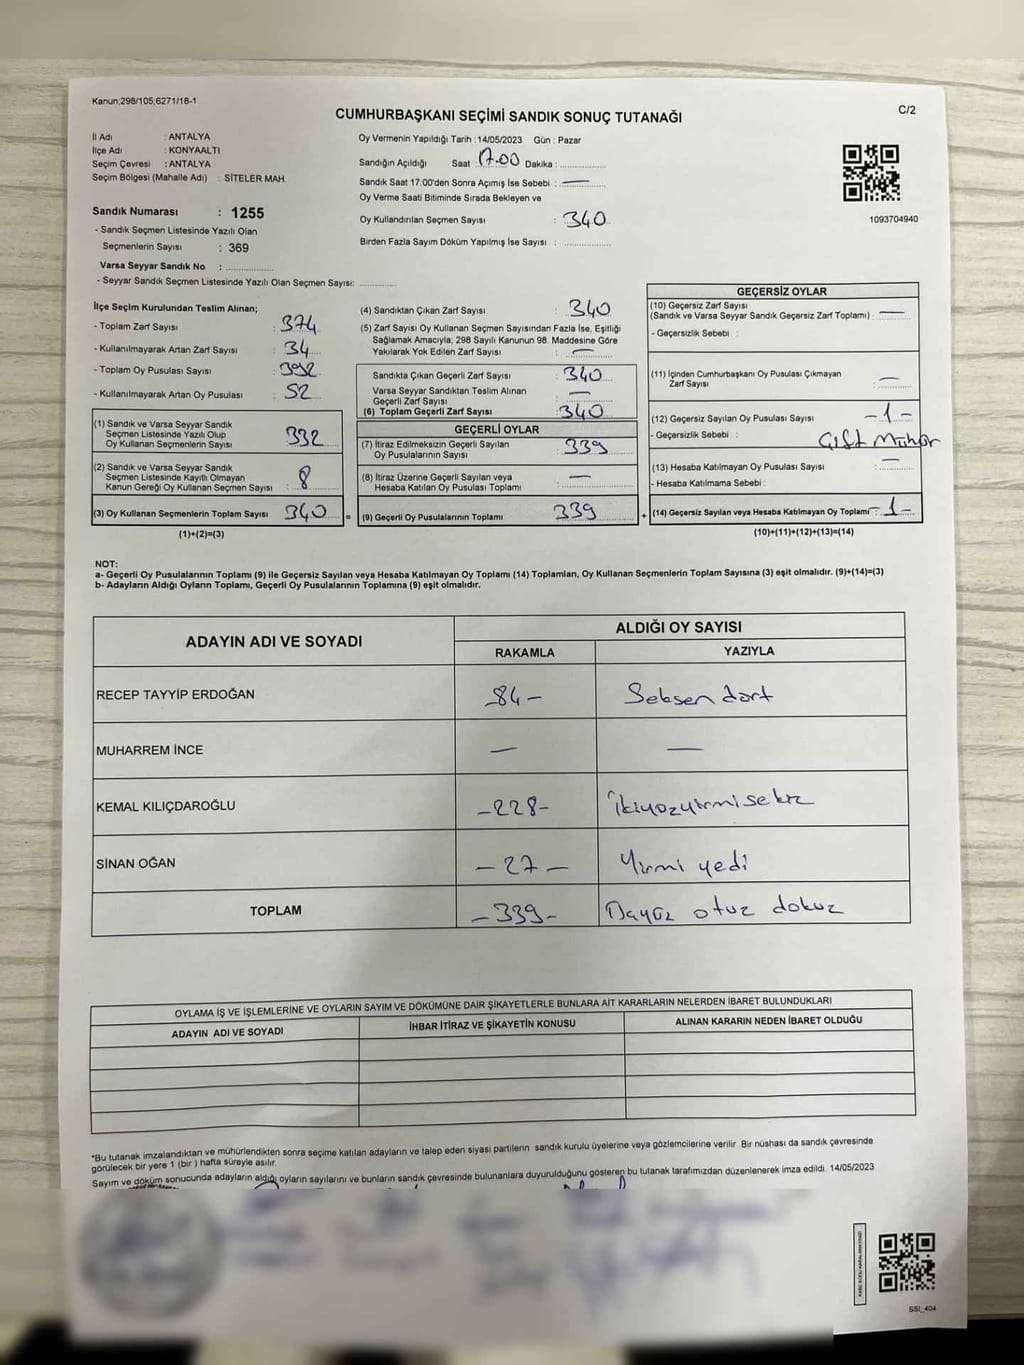 Kanun;298/105;6271/18-1
CUMHURBAŞKANI SEÇİMİ SANDIK SONUÇ TUTANAĞI
C/2
İl Adı : ANTALYA
İlçe Adı : KONYAALTI
Seçim Çevresi : ANTALYA
Seçim Bölgesi (Mahalle Adı) : SİTELER MAH.
Sandık Numarası : 1255
- Sandık Seçmen Listesinde Yazılı Olan
Seçmenlerin Sayısı : 369
Varsa Seyyar Sandık No :
- Seyyar Sandık Seçmen Listesinde Yazılı Olan Seçmen Sayısı:
Oy Vermenin Yapıldığı Tarih : 14/05/2023 Gün : Pazar
Sandığın Açıldığı Saat : 17.00 Dakika :
Sandık Saat 17:00'den Sonra Açımış İse Sebebi : —
Oy Verme Saati Bitiminde Sırada Bekleyen ve
Oy Kullandırılan Seçmen Sayısı : 340
Birden Fazla Sayım Döküm Yapılmış İse Sayısı :
1093704940
İlçe Seçim Kurulundan Teslim Alınan;
- Toplam Zarf Sayısı : 374
- Kullanılmayarak Artan Zarf Sayısı : 34
- Toplam Oy Pusulası Sayısı : 392
- Kullanılmayarak Artan Oy Pusulası : 52
(1) Sandık ve Varsa Seyyar Sandık
Seçmen Listesinde Yazılı Olup
Oy Kullanan Seçmenlerin Sayısı : 332
(2) Sandık ve Varsa Seyyar Sandık
Seçmen Listesinde Kayıtlı Olmayan
Kanun Gereği Oy Kullanan Seçmen Sayısı : 8
(3) Oy Kullanan Seçmenlerin Toplam Sayısı : 340 =
(1)+(2)=(3)
(4) Sandıktan Çıkan Zarf Sayısı : 340
(5) Zarf Sayısı Oy Kullanan Seçmen Sayısından Fazla İse, Eşitliği
Sağlamak Amacıyla; 298 Sayılı Kanunun 98. Maddesine Göre
Yakılarak Yok Edilen Zarf Sayısı : —
Sandıkta Çıkan Geçerli Zarf Sayısı : 340
Varsa Seyyar Sandıktan Teslim Alınan
Geçerli Zarf Sayısı : —
(6) Toplam Geçerli Zarf Sayısı : 340
GEÇERLİ OYLAR
(7) İtiraz Edilmeksizin Geçerli Sayılan
Oy Pusulalarının Sayısı : 339
(8) İtiraz Üzerine Geçerli Sayılan veya
Hesaba Katılan Oy Pusulası Toplamı : —
(9) Geçerli Oy Pusulalarının Toplamı : 339 +
GEÇERSİZ OYLAR
(10) Geçersiz Zarf Sayısı
(Sandık ve Varsa Seyyar Sandık Geçersiz Zarf Toplamı) : —
- Geçersizlik Sebebi :
(11) İçinden Cumhurbaşkanı Oy Pusulası Çıkmayan
Zarf Sayısı : —
(12) Geçersiz Sayılan Oy Pusulası Sayısı : -1-
- Geçersizlik Sebebi : Çift Mühür
(13) Hesaba Katılmayan Oy Pusulası Sayısı : —
- Hesaba Katılmama Sebebi :
(14) Geçersiz Sayılan veya Hesaba Katılmayan Oy Toplamı : -1-
(10)+(11)+(12)+(13)=(14)
NOT:
a- Geçerli Oy Pusulalarının Toplamı (9) ile Geçersiz Sayılan veya Hesaba Katılmayan Oy Toplamı (14) Toplamları, Oy Kullanan Seçmenlerin Toplam Sayısına (3) eşit olmalıdır. (9)+(14)=(3)
b- Adayların Aldığı Oyların Toplamı, Geçerli Oy Pusulalarının Toplamına (9) eşit olmalıdır.
ADAYIN ADI VE SOYADI ALDIĞI OY SAYISI
RAKAMLA YAZIYLA
RECEP TAYYİP ERDOĞAN -84- Seksen dört
MUHARREM İNCE — —
KEMAL KILIÇDAROĞLU -228- İkiyüzyirmisekiz
SİNAN OĞAN -27- Yirmi yedi
TOPLAM -339- otuz dokuz
OYLAMA İŞ VE İŞLEMLERİNE VE OYLARIN SAYIM VE DÖKÜMÜNE DAİR ŞİKAYETLERLE BUNLARA AİT KARARLARIN NELERDEN İBARET BULUNDUKLARI
ADAYIN ADI VE SOYADI İHBAR İTİRAZ VE ŞİKAYETİN KONUSU ALINAN KARARIN NEDEN İBARET OLDUĞU
*Bu tutanak imzalandıktan ve mühürlendikten sonra seçime katılan adayların ve talep eden siyasi partilerin sandık kurulu üyelerine veya gözlemcilerine verilir. Bir nüshası da sandık çevresinde
görülecek bir yere 1 (bir) hafta süreyle asılır.
Sayım ve döküm sonucunda adayların aldığı oyların sayılarını ve bunların sandık çevresinde bulunanlara duyurulduğunu gösteren bu tutanak tarafımızdan düzenlenerek imza edildi. 14/05/2023
SSI_404